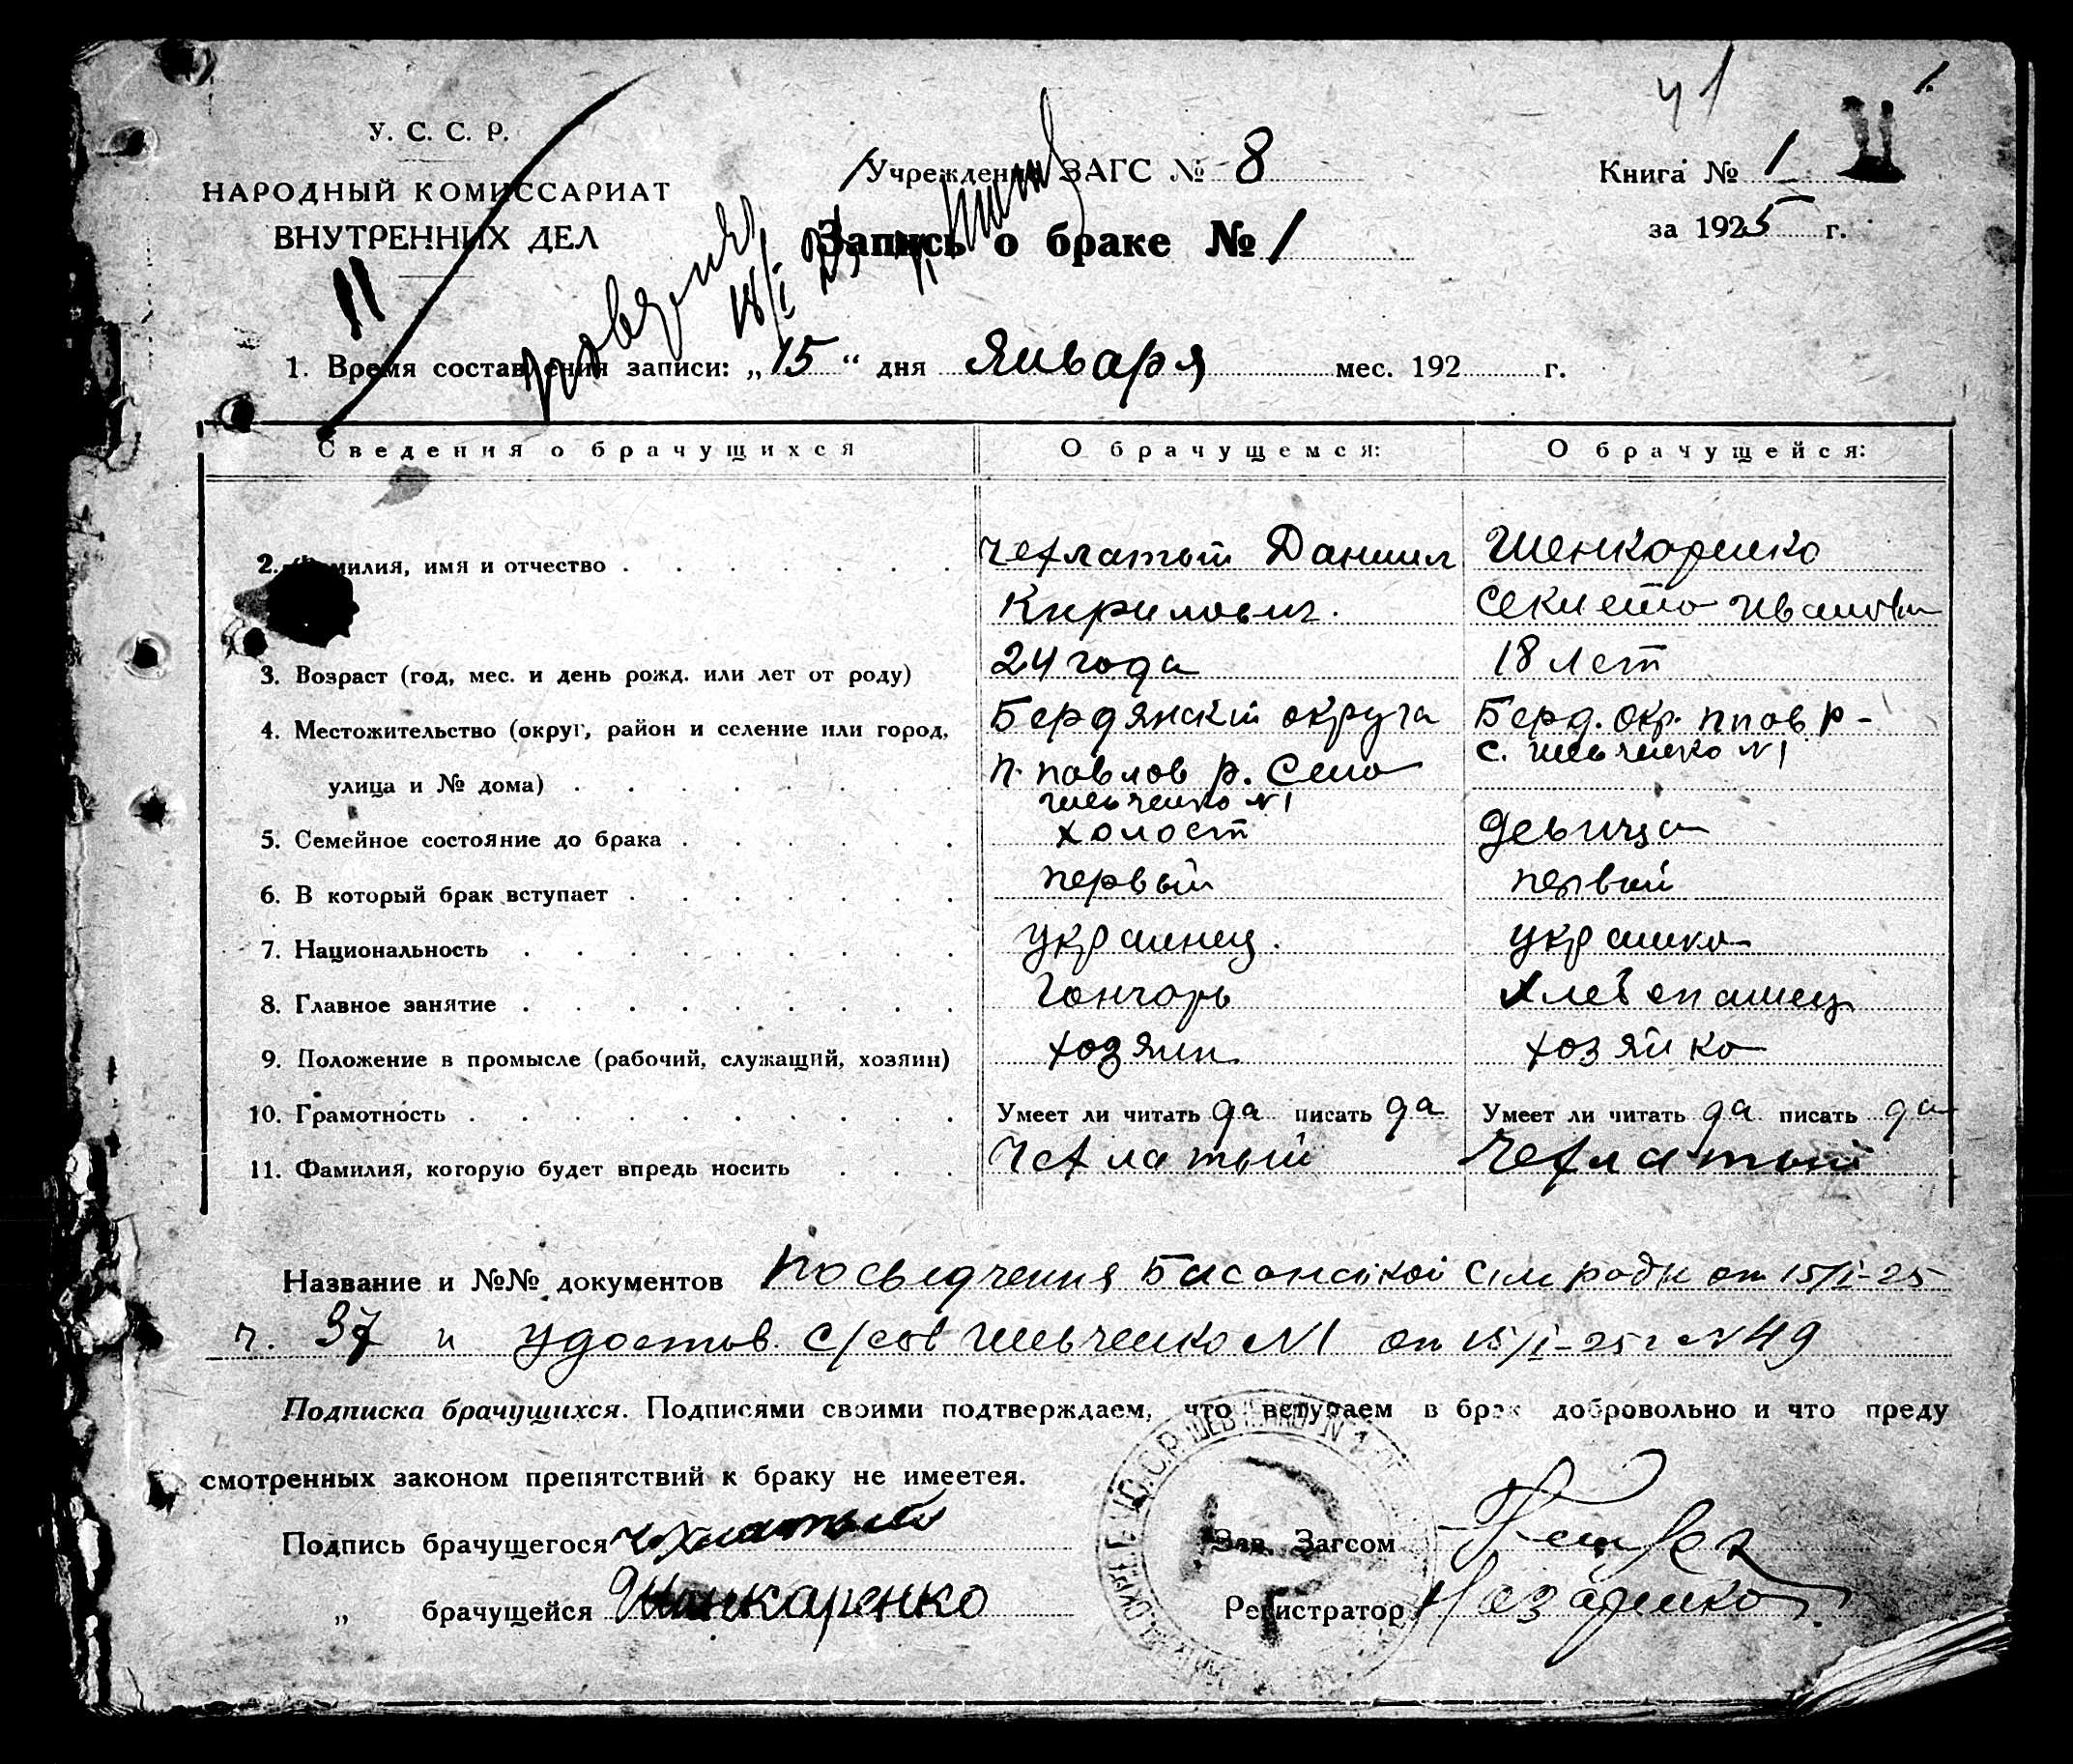 41 1.
У. С. С. Р.
НАРОДНЫЙ КОМИССАРИАТ
ВНУТРЕННИХ ДЕЛ
11
Учреждение ЗАГС № 8
Книга № 1
за 1925 г.
Запись о браке № 1
18/I
1. Время составления записи: „15“ дня Января мес. 192 г.
Сведения о брачущихся О брачущемся: О брачущейся:
2. Фамилия, имя и отчество Чехлатый Даниил Шенкаренко
Кирилович.
3. Возраст (год, мес. и день рожд. или лет от роду) 24 года 18 лет
4. Местожительство (округ, район и селение или город, Бердянский округа Берд. Окр. ппов р-
с. Шевченко N1
улица и № дома) п. павлов р. Село
Шевченко N1
5. Семейное состояние до брака холост девица
6. В который брак вступает первый первый
7. Национальность украинец. украинка
8. Главное занятие Гончарь Хлебопашец
9. Положение в промысле (рабочий, служащий, хозяин) хозяин хозяйка
10. Грамотность Умеет ли читать да писать да Умеет ли читать да писать да
11. Фамилия, которую будет впредь носить Чехлатый Чехлатый
Название и №№ документов Посьвідчення Басанської Сільради от 15/I-25
ч. 37 и удостов. с/сов Шевченко N1 от 15/I-25 г N49
Подписка брачущихся. Подписями своими подтверждаем, что вступаем в брак добровольно и что преду
смотренных законом препятствий к браку не имеется.
Подпись брачущегося Чехлатый Зав. Загсом
„ брачущейся Шенкаренко Регистратор Назаренко